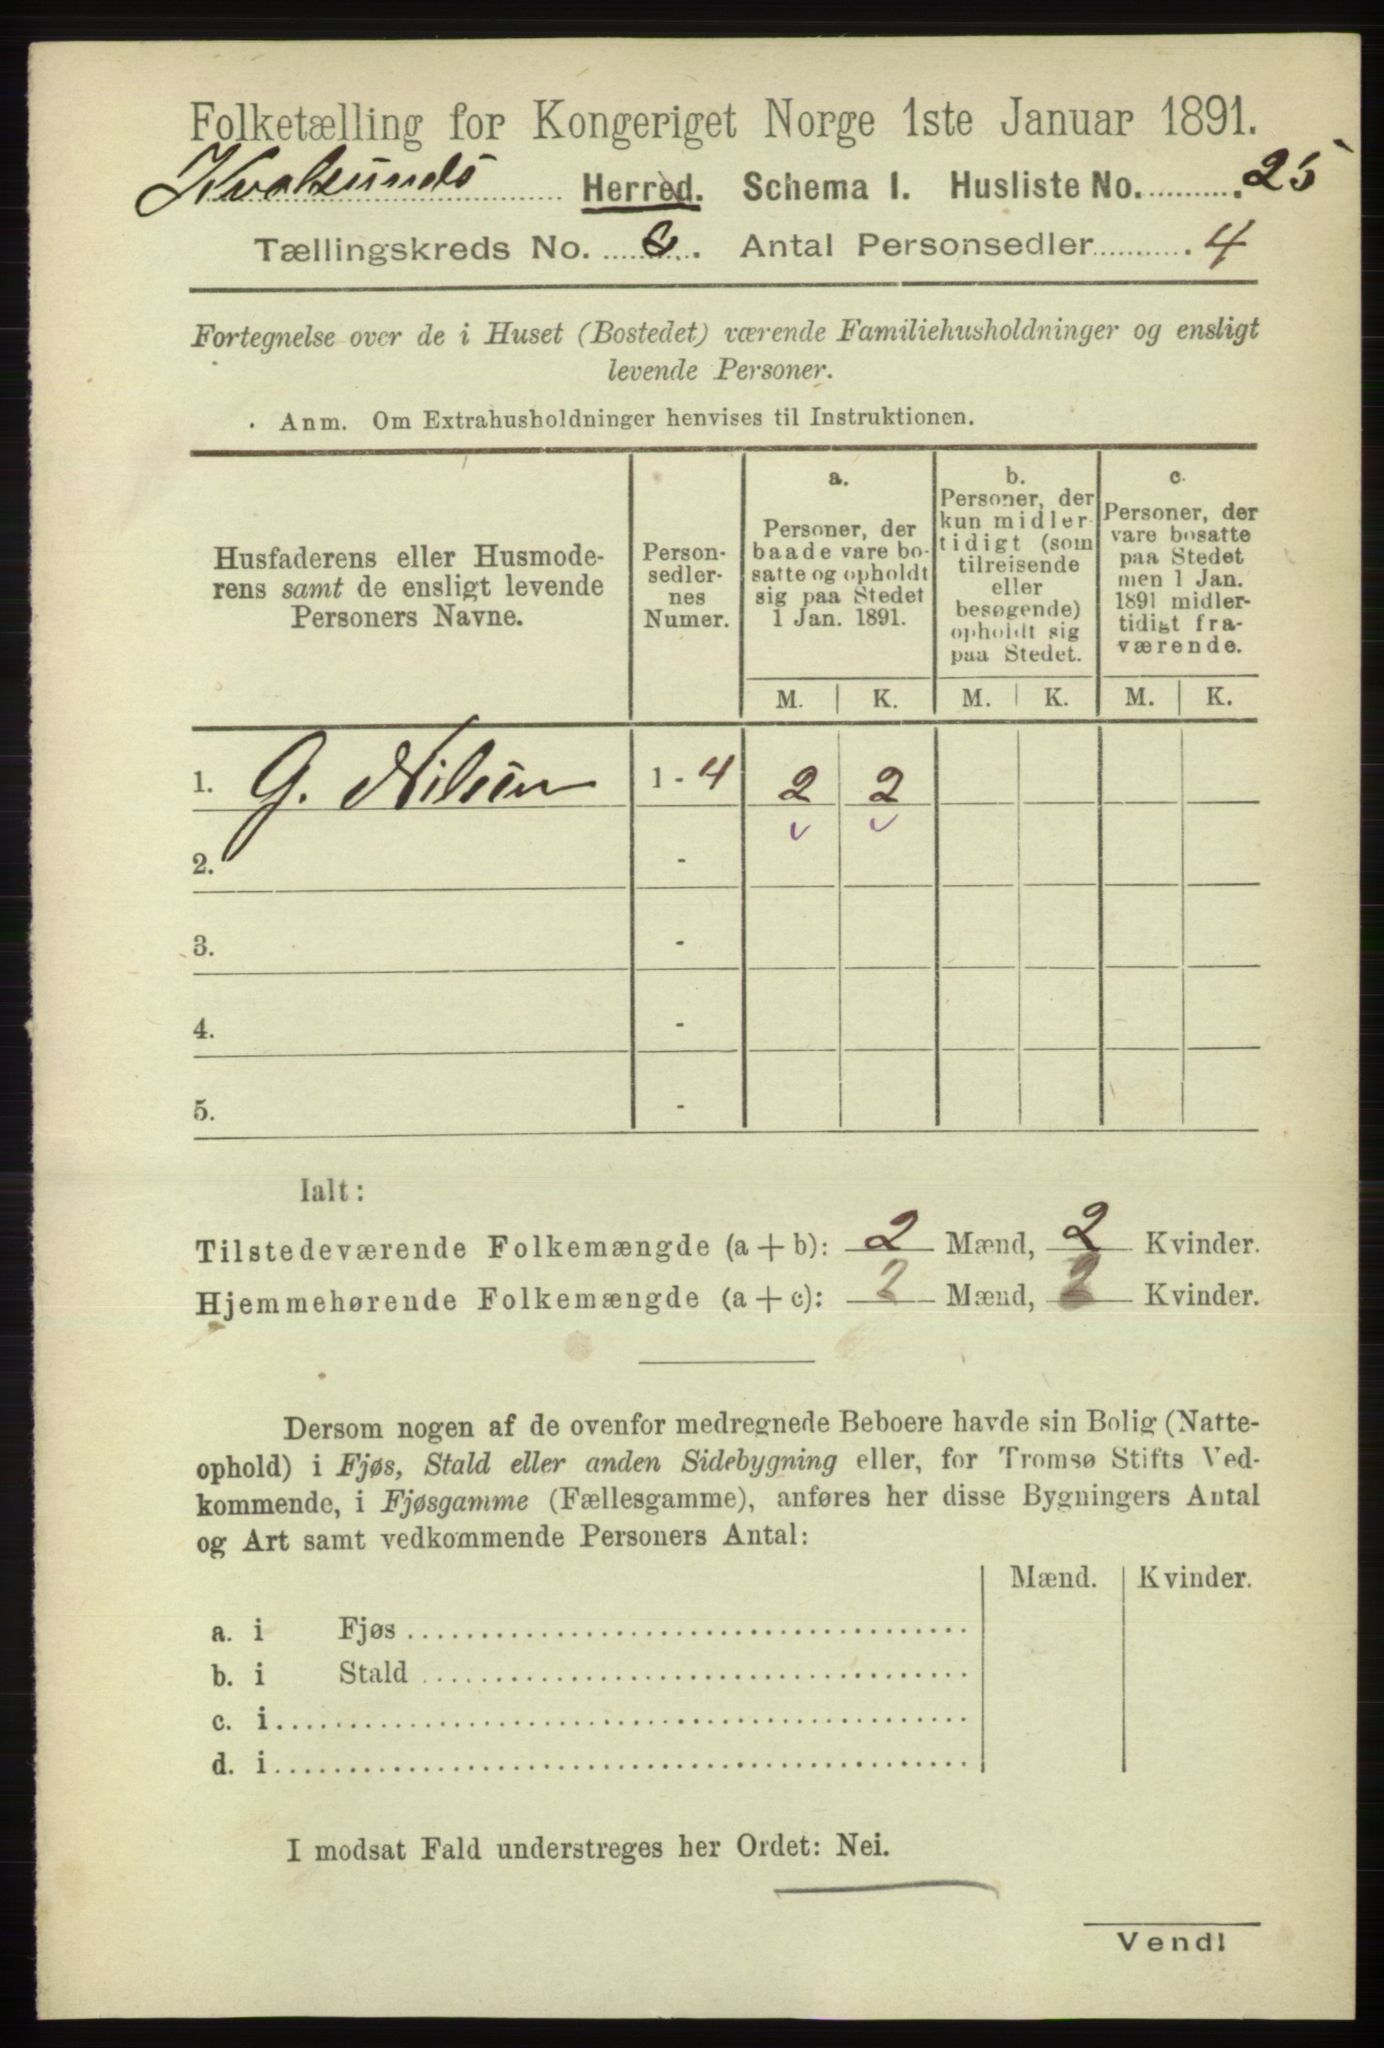 Folketælling for Kongeriget Norge 1ste Januar 1891.
Kvalsunds Herred. Schema I. Husliste No. 25
Tællingskreds No. 6. Antal Personsedler 4
Fortegnelse over de i Huset (Bostedet) værende Familiehusholdninger og ensligt
levende Personer.
Anm. Om Extrahusholdninger henvises til Instruktionen.
Husfaderens eller Husmode-
rens samt de ensligt levende
Personers Navne.
Person-
sedler-
nes
Numer.
a.
Personer, der
baade vare bo-
satte og opholdt
sig paa Stedet
1 Jan. 1891.
b.
Personer, der
kun midler-
tidigt (som
tilreisende
eller
besøgende)
opholdt sig
paa Stedet.
c.
Personer, der
vare bosatte
paa Stedet
men 1 Jan.
1891 midler-
tidigt fra-
værende.
M. K. M. K. M. K.
1. G. Nilsen 1 - 4 2 2
2. -
3. -
4. -
5. -
Ialt:
Tilstedeværende Folkemængde (a + b): 2 Mænd, 2 Kvinder.
Hjemmehørende Folkemængde (a + c): 2 Mænd, 2 Kvinder.
Dersom nogen af de ovenfor medregnede Beboere havde sin Bolig (Natte-
ophold) i Fjøs, Stald eller anden Sidebygning eller, for Tromsø Stifts Ved-
kommende, i Fjøsgamme (Fællesgamme), anføres her disse Bygningers Antal
og Art samt vedkommende Personers Antal:
Mænd. Kvinder.
a. i Fjøs
b. i Stald
c. i
d. i
I modsat Fald understreges her Ordet: Nei.
Vend!